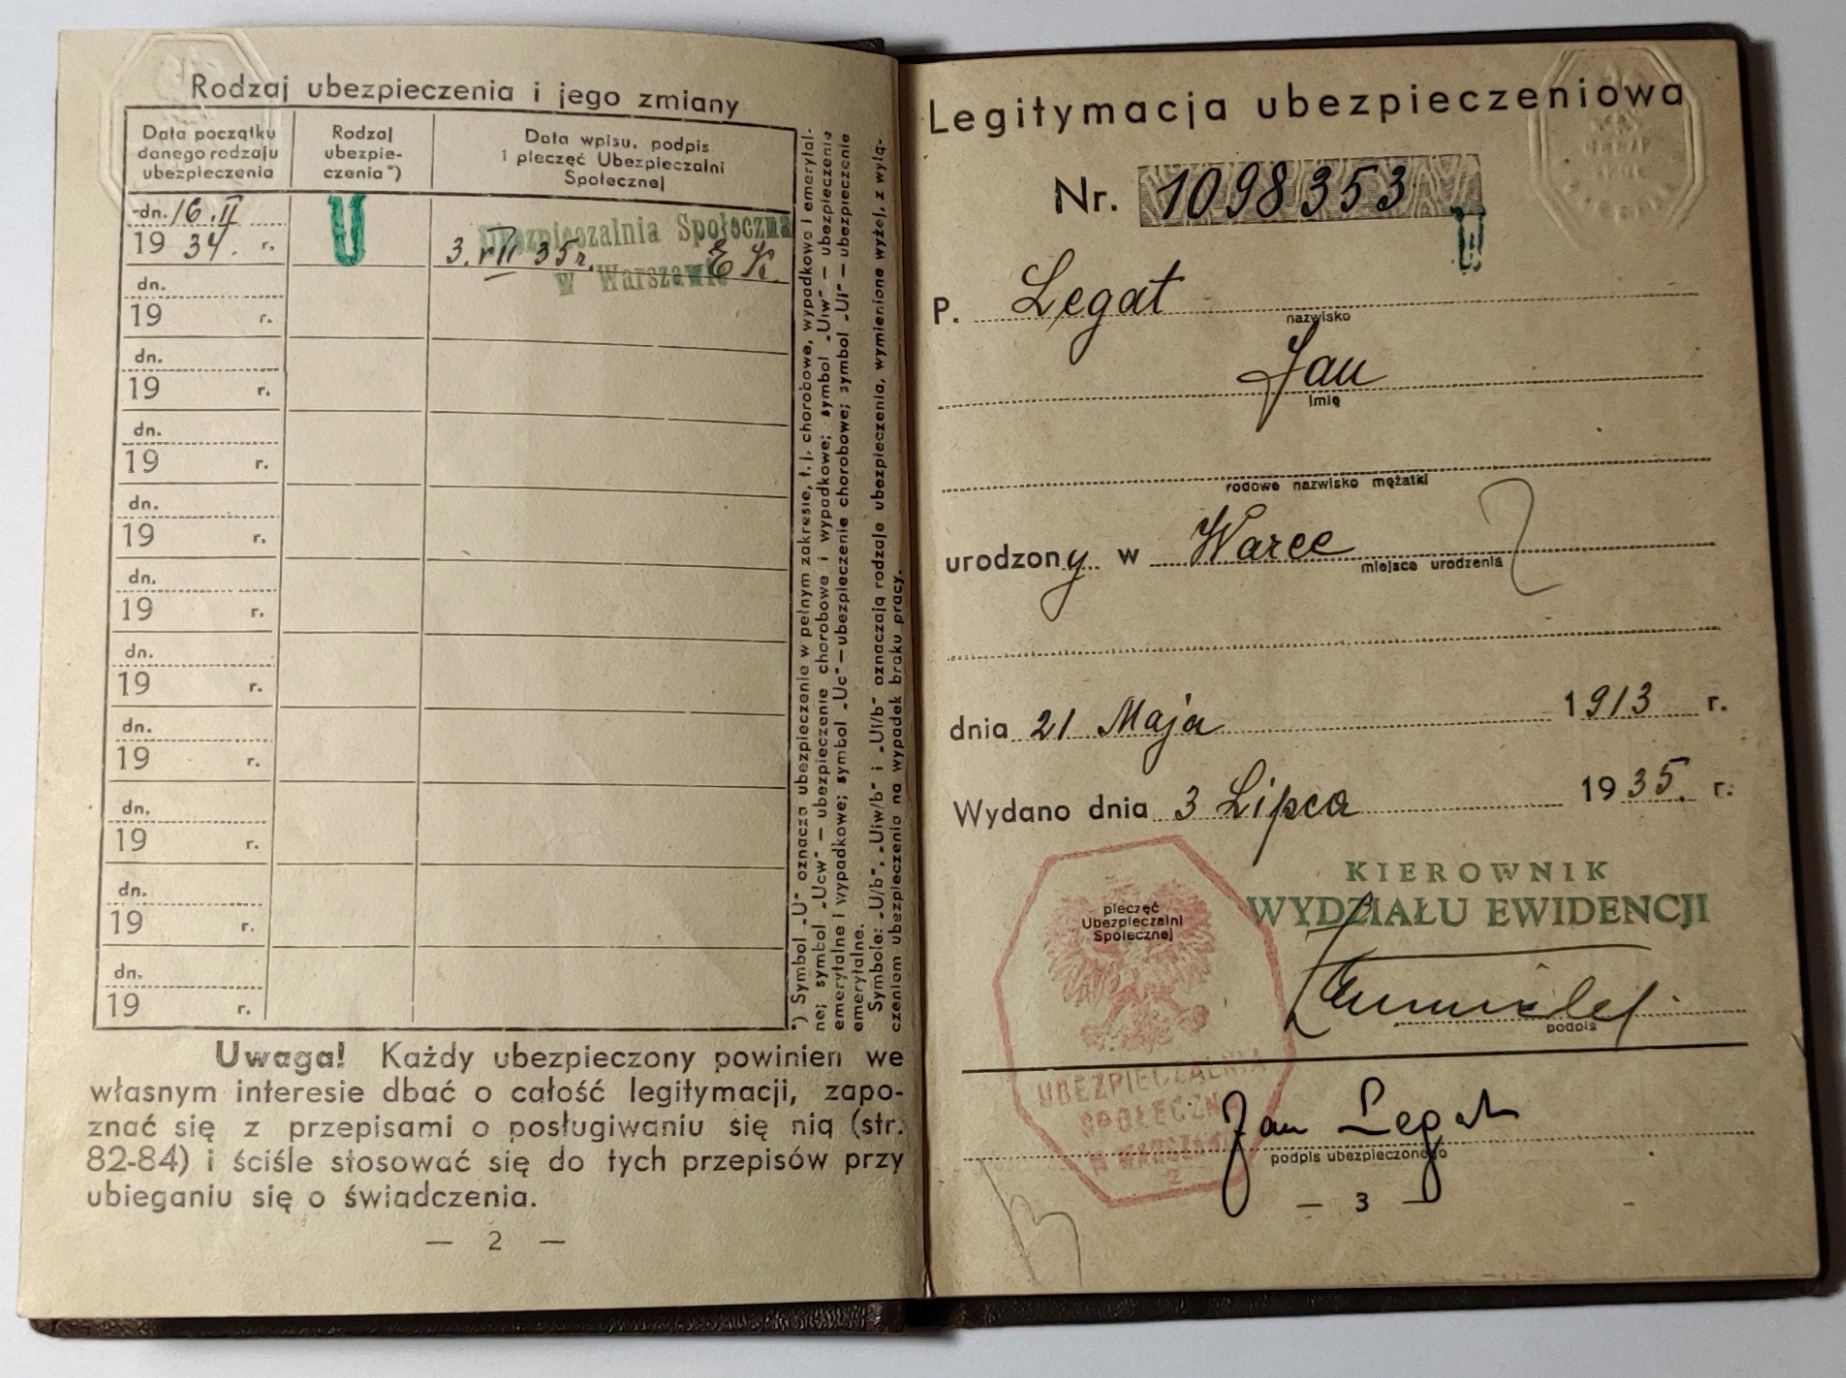 Rodzaj ubezpieczenia i jego zmiany
Data początku danego rodzaju ubezpieczenia
Rodzaj ubezpie-czenia*)
Data wpisu, podpis i pieczęć Ubezpieczalni Społecznej
dn. 16.II
1934. r.
U
3.VII 35r. E K.
Ubezpieczalnia Społeczna
w Warszawie
dn.
19 r.
dn.
19 r.
dn.
19 r.
dn.
19 r.
dn.
19 r.
dn.
19 r.
dn.
19 r.
dn.
19 r.
dn.
19 r.
dn.
19 r.
*) Symbol „U" oznacza ubezpieczenie w pełnym zakresie, t. j. chorobowe, wypadkowe i emerytal-
ne; symbol „Ucw" — ubezpieczenie chorobowe i wypadkowe; symbol „Uiw" — ubezpieczenie
emerytalne i wypadkowe; symbol „Uc" — ubezpieczenie chorobowe; symbol „Ui" — ubezpieczenie
emerytalne.
Symbole: „U/b", „Uiw/b" i „Ui/b" oznaczają rodzaje ubezpieczenia, wymienione wyżej, z wyłą-
czeniem ubezpieczenia na wypadek braku pracy.
Uwaga! Każdy ubezpieczony powinien we
własnym interesie dbać o całość legitymacji, zapo-
znać się z przepisami o posługiwaniu się nią (str.
82-84) i ściśle stosować się do tych przepisów przy
ubieganiu się o świadczenia.
— 2 —
Legitymacja ubezpieczeniowa
Nr. 1098353
U
P. Legat
nazwisko
Jan
imię
rodowe nazwisko mężatki
urodzony w Warce
miejsce urodzenia
dnia 21 Maja 1913 r.
Wydano dnia 3 Lipca 1935. r.
KIEROWNIK
WYDZIAŁU EWIDENCJI
pieczęć
Ubezpieczalni
Społecznej
podpis
UBEZPIECZALNIA
SPOŁECZNA
W WARSZAWIE
2
Jan Legat
podpis ubezpieczonego
— 3 —